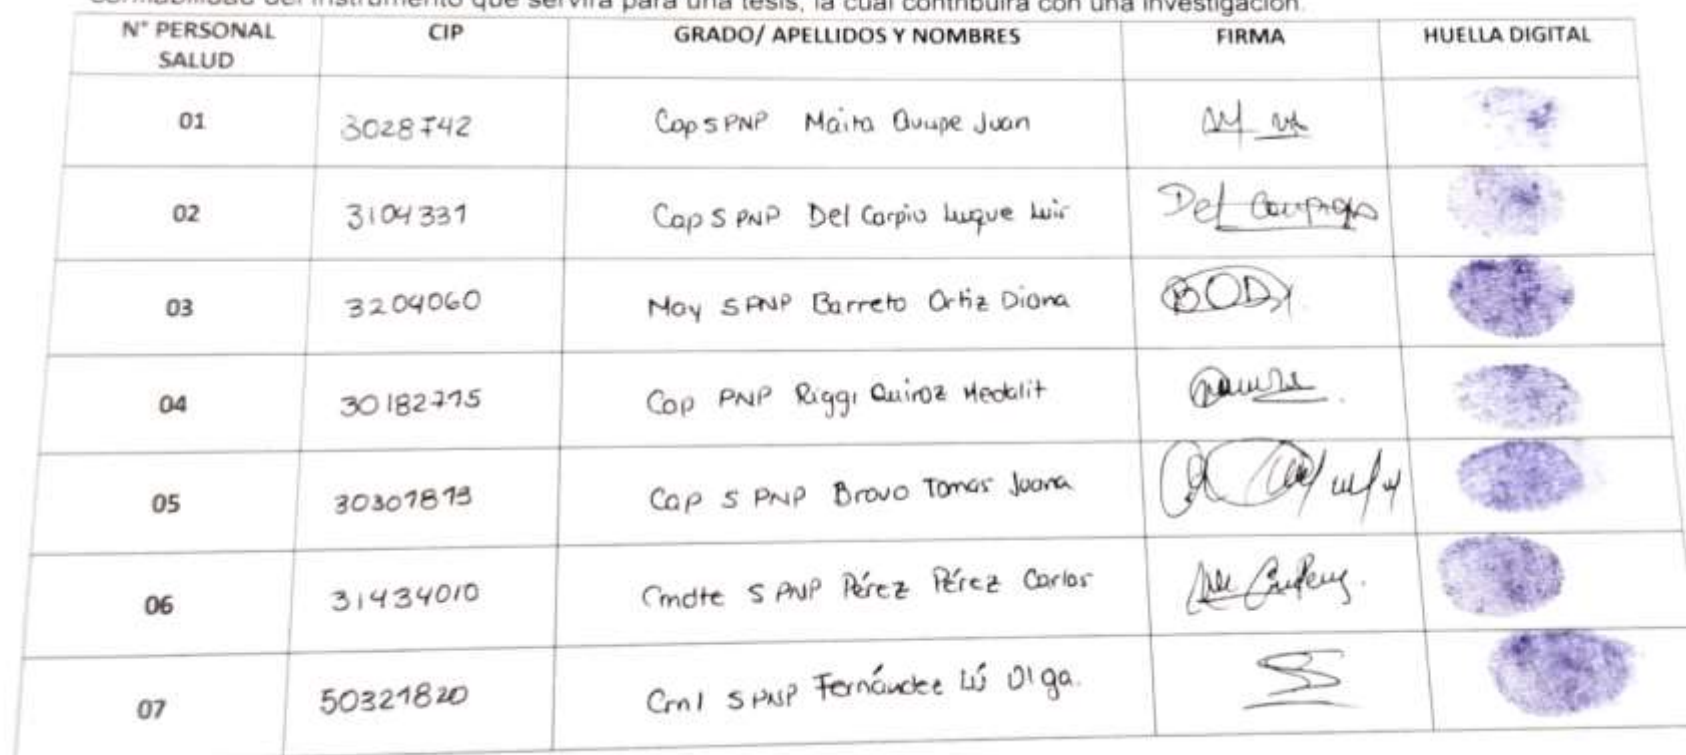 confiabilidad del instrumento que servirá para una tesis, la cual contribuirá con una investigación.
N° PERSONAL SALUD CIP GRADO/ APELLIDOS Y NOMBRES FIRMA HUELLA DIGITAL
01 3028742 Cap S PNP Maita Quispe Juan
02 3104331 Cap S PNP Del Carpio Luque Luis
03 3204060 May S PNP Barreto Ortiz Diana BODI
04 30182715 Cap PNP Riggi Quiroz
05 30301813 Cap S PNP Bravo Tomas Juana
06 31434010 Cmdte S PNP Pérez Pérez Carlos
07 50321820 Crnl S PNP Fernández Lú Olga.